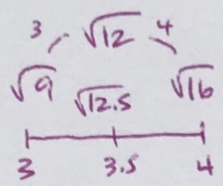 3 √12 4
√9 √12.5 √16
3 3.5 4